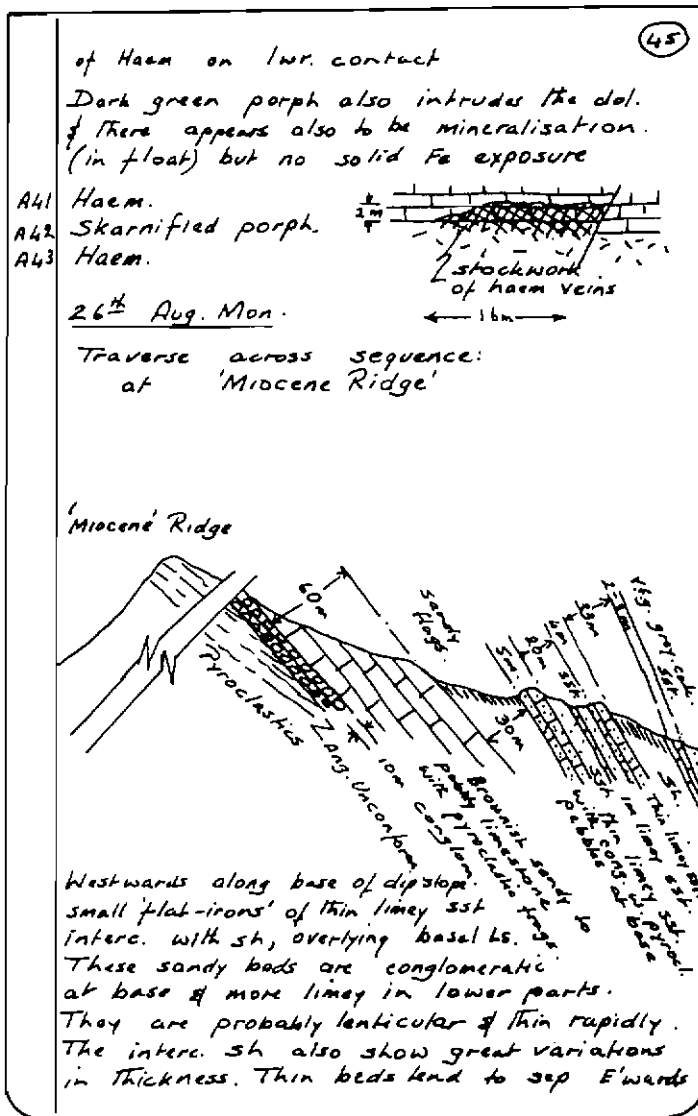 45
of Haem on lwr. contact
Dark green porph also intrudes the dol.
& there appears also to be mineralisation.
(in float) but no solid Fe exposure
A41 Haem.
A42 Skarnified porph.
A43 Haem.
2m
stockwork
of haem veins
16m
26th Aug. Mon.
Traverse across sequence:
at 'Miocene Ridge'
'Miocene' Ridge
60m
Sandy
flags
5m
20m
ssh
4m
33m
grey calc.
sst
Pyroclastics
Ang. Unconform
10m conglom
Brownish sandy to
pebbly limestone
with pyroclastic frags
30m
ssh
thin limey sst.
with cong. w. pyrocl.
pebbles at base
1m limey sst
sh.
Thin limey sst.
Westwards along base of dip slope.
small 'flat-irons' of thin limey sst
interc. with sh, overlying basal Ls.
These sandy beds are conglomeratic
at base & more limey in lower parts.
They are probably lenticular & thin rapidly.
The interc. sh also show great variations
in thickness. Thin beds tend to sep E'wards